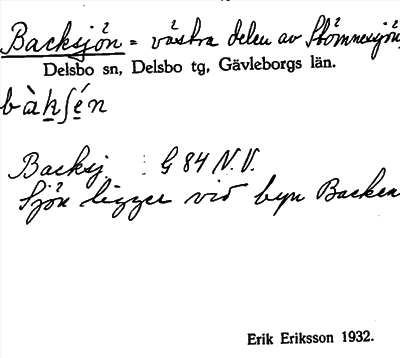 Backsjön = västra delen av Stömnesjön,
Delsbo sn, Delsbo tg, Gävleborgs län.
bàkʃén
Backsj : G 84 N.V.
Sjön ligger vid byn Backen
Erik Eriksson 1932.